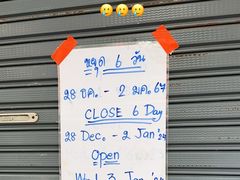 หยุด 6 วัน
28 ธค. - 2 มค. 67
CLOSE 6 Day
28 Dec. - 2 Jan '24
Open
Wed 3 Jan '24